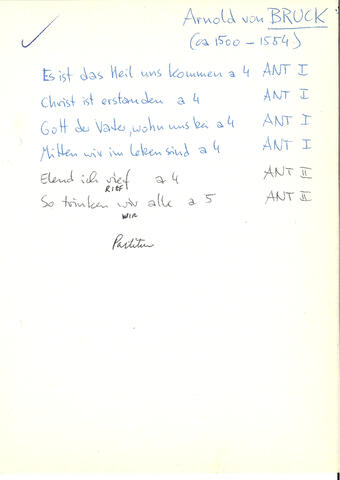 Arnold von BRUCK
(ca 1500 - 1554)
Es ist das Heil uns kommen a 4 ANT I
Christ ist erstanden a 4 ANT I
Gott der Vater, wohn uns bei a 4 ANT I
Mitten wir im Leben sind a 4 ANT I
Elend ich rief a 4 ANT II
RIEF
So trinken wir alle a 5 ANT II
WIR
Partitur